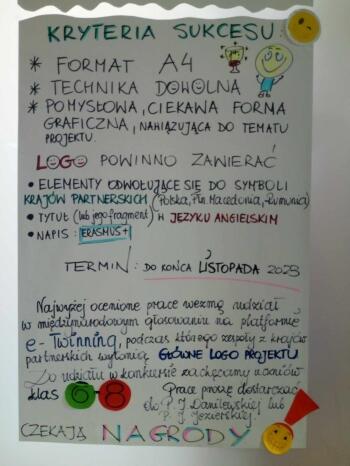 KRYTERIA SUKCESU:
* FORMAT A4
* TECHNIKA DOWOLNA
* POMYSŁOWA, CIEKAWA FORMA
GRAFICZNA, NAWIĄZUJĄCA DO TEMATU
PROJEKTU.
LOGO POWINNO ZAWIERAĆ
• ELEMENTY ODWOŁUJĄCE SIĘ DO SYMBOLI
KRAJÓW PARTNERSKICH (Polska, Płn. Macedonia, Rumunia)
• TYTUŁ (lub jego fragment) W JĘZYKU ANGIELSKIM
• NAPIS: ERASMUS+
TERMIN: DO KOŃCA LISTOPADA 2023
Najwyżej ocenione prace wezmą udział
w międzynarodowym głosowaniu na platformie
e-Twinning, podczas którego zespoły z krajów
partnerskich wyłonią GŁÓWNE LOGO PROJEKTU
Do udziału w konkursie zachęcamy uczniów
klas 6-8 Prace proszę dostarczać
do P. J. Danilewskiej lub
P. J. Jezierskiej.
CZEKAJĄ NAGRODY